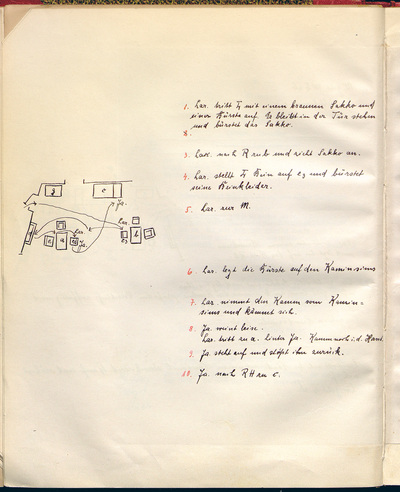 1. Lar. tritt ℏ mit einem braunen Sakko und
einer Bürste auf. Er bleibt in der Tür stehen
und bürstet das Sakko.
2.
3. Lar. nach R und zieht Sakko an.
4. Lar. stellt Bein auf und bürstet
seine Beinkleider.
5. Lar. zur M.
6. Lar. legt die Bürste auf den Kaminsims
7. Lar. nimmt den Kamm vom Kamin-
sims und kämmt sich.
8. Ja. weint leise.
Lar. tritt zu a. hinter Ja. Kamm noch i. d. Hand.
9. Ja. steht auf und stößt ihn zurück.
10. Ja. nach RH zu c.
g
c
Ja.
Lar.
a
b
Lar.
Ja.